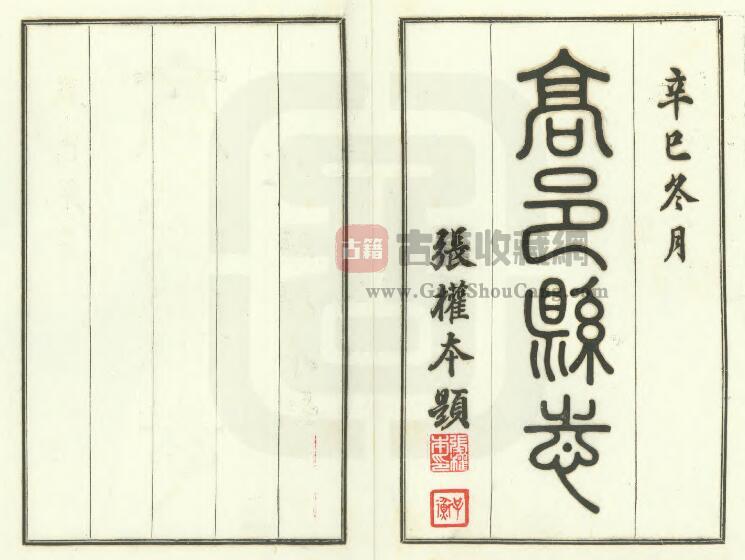 辛巳冬月
高邑縣志
張權本題
張權本印
古籍
古籍收藏網
www.GuJiShouCang.com